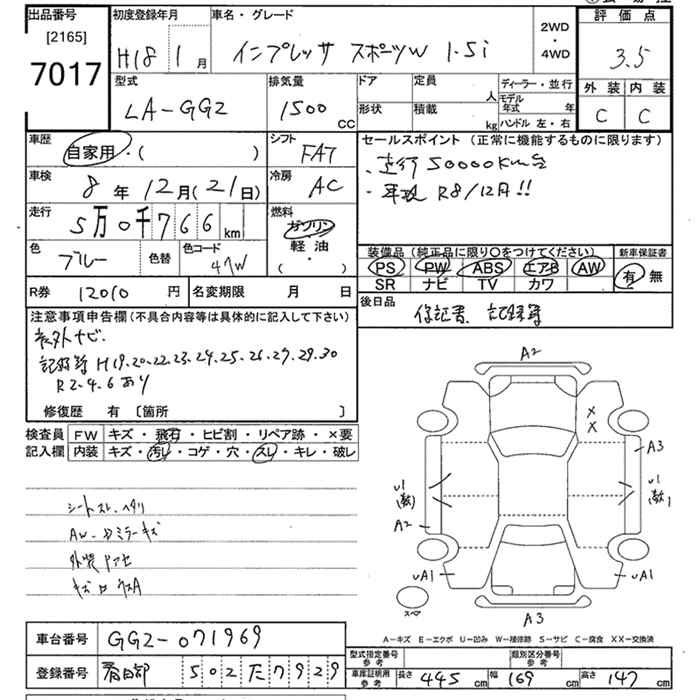 出品番号 初度登録年月 車名・グレード 2WD・4WD 評価点
[2165]
7017 H18 1月 インプレッサ スポーツW 1.5i 3.5
型式 排気量 ドア 定員 人 ディーラー・並行 外装 内装
LA-GG2 1500cc 形状 積載 kg モデル年式 年 ハンドル 左・右 C C
車歴 自家用・( ) シフト FAT セールスポイント (正常に機能するものに限ります)
・走行50000Km台
車検 8年12月(21日) 冷房 AC ・車検 R8/12月!!
走行 5万0千766km 燃料 ガソリン・軽油・( )
色 ブルー 色替 色コード 47W
装備品 (純正品に限り〇をつけてください) 新車保証書
PS PW ABS エアB AW 有 無
SR ナビ TV カワ
R券 12010円 名変期限 月 日 後日品 保証書 記録簿
注意事項申告欄(不具合内容等は具体的に記入して下さい)
社外ナビ.
記録簿 H19.20.22.23.24.25.26.27.29.30
R2.4.6あり
修復歴 有 [箇所 ]
検査員記入欄 FW キズ・飛石・ヒビ割・リペア跡・×要
内装 キズ・汚レ・コゲ・穴・スレ・キレ・破レ
シートスレ.ヘタリ
AW.ドアミラーキズ
A2
A3
U1
A2
UA1
U1
UA1
スペア
A3
A―キズ E―エクボ U―凹み W―補修跡 S―サビ C―腐食 XX―交換済
車台番号 GG2-071969
登録番号 春日部 502 た 7929
型式指定番号 参考 類別区分番号 参考
車庫証明用 参考 長さ 445cm 幅 169cm 高さ 147cm